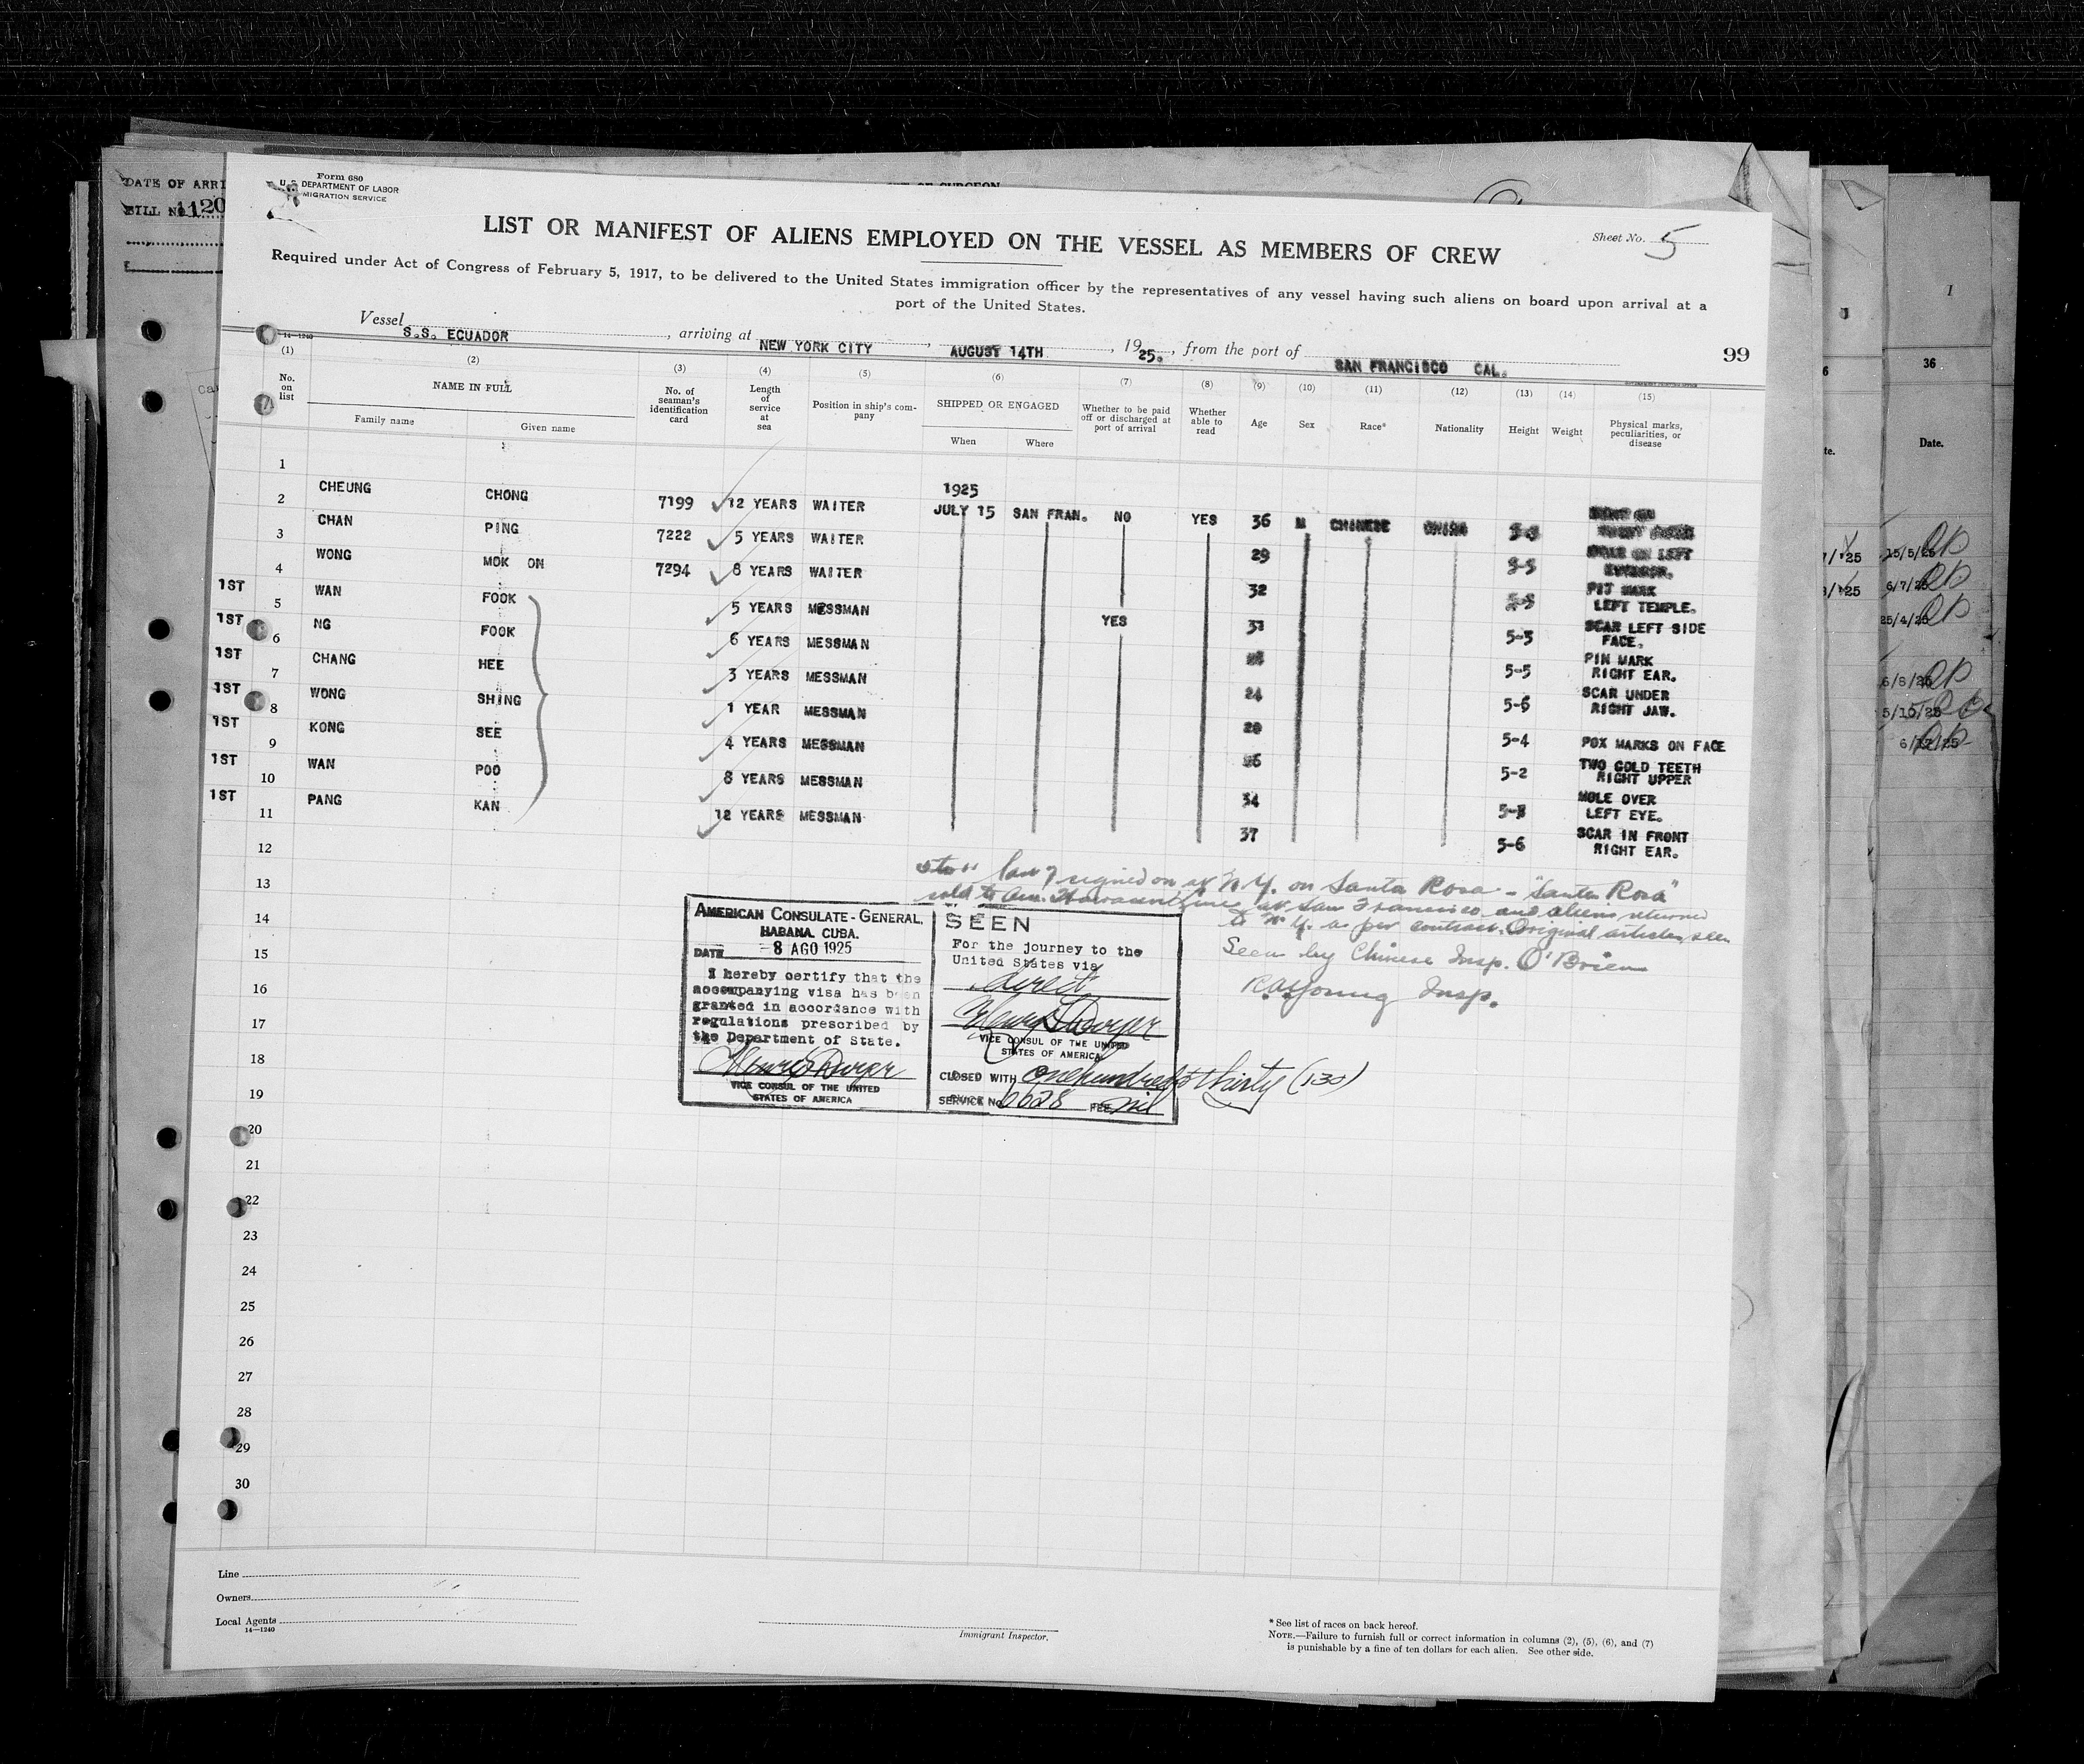 DATE OF ARRI
BILL NO. 1120
Form 680
U. S. DEPARTMENT OF LABOR
MIGRATION SERVICE
Sheet No. 5
LIST OR MANIFEST OF ALIENS EMPLOYED ON THE VESSEL AS MEMBERS OF CREW
Required under Act of Congress of February 5, 1917, to be delivered to the United States immigration officer by the representatives of any vessel having such aliens on board upon arrival at a
port of the United States.
Vessel S.S. ECUADOR, arriving at NEW YORK CITY, AUGUST 14TH, 1925., from the port of SAN FRANCISCO CAL.
99
14—1240
(1) (2) (3) (4) (5) (6) (7) (8) (9) (10) (11) (12) (13) (14) (15)
No. on list
NAME IN FULL
Family name Given name
No. of seaman's identification card
Length of service at sea
Position in ship's company
SHIPPED OR ENGAGED
When Where
Whether to be paid off or discharged at port of arrival
Whether able to read
Age
Sex
Race*
Nationality
Height
Weight
Physical marks, peculiarities, or disease
1
1925
2 CHEUNG CHONG 7199 12 YEARS WAITER JULY 15 SAN FRAN. NO YES 36 M CHINESE CHINA
3 CHAN PING 7222 5 YEARS WAITER 29 5-5 LEFT
4 WONG MOK ON 7294 8 YEARS WAITER 32 PIT MARK LEFT TEMPLE.
1ST 5 WAN FOOK 5 YEARS MESSMAN YES 5-3 SCAR LEFT SIDE FACE.
1ST 6 NG FOOK 6 YEARS MESSMAN 5-5 PIN MARK RIGHT EAR.
1ST 7 CHANG HEE 3 YEARS MESSMAN 24 5-6 SCAR UNDER RIGHT JAW.
1ST 8 WONG SHING 1 YEAR MESSMAN 5-4 POX MARKS ON FACE
1ST 9 KONG SEE 4 YEARS MESSMAN 5-2 TWO GOLD TEETH RIGHT UPPER
1ST 10 WAN POO 8 YEARS MESSMAN 34 MOLE OVER LEFT EYE.
1ST 11 PANG KAN 12 YEARS MESSMAN 37 5-6 SCAR IN FRONT RIGHT EAR.
12
13
14
15
16
17
18
19
20
21
22
23
24
25
26
27
28
29
30
signed on at N.Y. on Santa Rosa - "Santa Rosa"
sold to Am. Hawaiian Line at San Francisco and aliens returned
to N.Y. as per contract. Original articles seen
Seen by Chinese Insp. O'Brien
Insp.
AMERICAN CONSULATE-GENERAL,
HABANA, CUBA.
DATE 8 AGO 1925
I hereby certify that the
accompanying visa has been
granted in accordance with
regulations prescribed by
the Department of State.
VICE CONSUL OF THE UNITED
STATES OF AMERICA
SEEN
For the journey to the
United States via
direct
VICE CONSUL OF THE UNITED
STATES OF AMERICA
CLOSED WITH one hundred & thirty (130)
SERVICE No. 6628 FEE nil
Line
Owners
Local Agents
14—1240
Immigrant Inspector.
* See list of races on back hereof.
NOTE.—Failure to furnish full or correct information in columns (2), (5), (6), and (7)
is punishable by a fine of ten dollars for each alien. See other side.
36
Date.
15/5/25
6/7/25
25/4/25